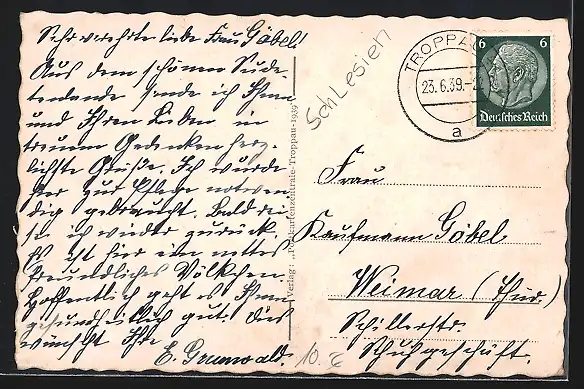 Sehr verehrte liebe Frau Göbel!
Aus dem schönen Sude-
tenlande sende ich Ihnen
und Ihren Lieben in
treuem Gedenken herz-
lichste Grüße. Ich wurde
hier zur Pflege notwen-
dig gebraucht. Bald rei-
se ich wieder zurück.
Es ist hier ein nettes
freundliches Völkchen.
Hoffentlich geht es Ihnen
gesundheitlich gut. Dies
wünscht Ihre
E. Grunwald.
Verlag: Ansichtskartenzentrale-Troppau-1939
Schlesien
TROPPAU
23.6.39.
a
6 6
Deutsches Reich
Frau
Kaufmann Göbel
Weimar (Thür.)
Schillerstr.
Schuhgeschäft.
10.